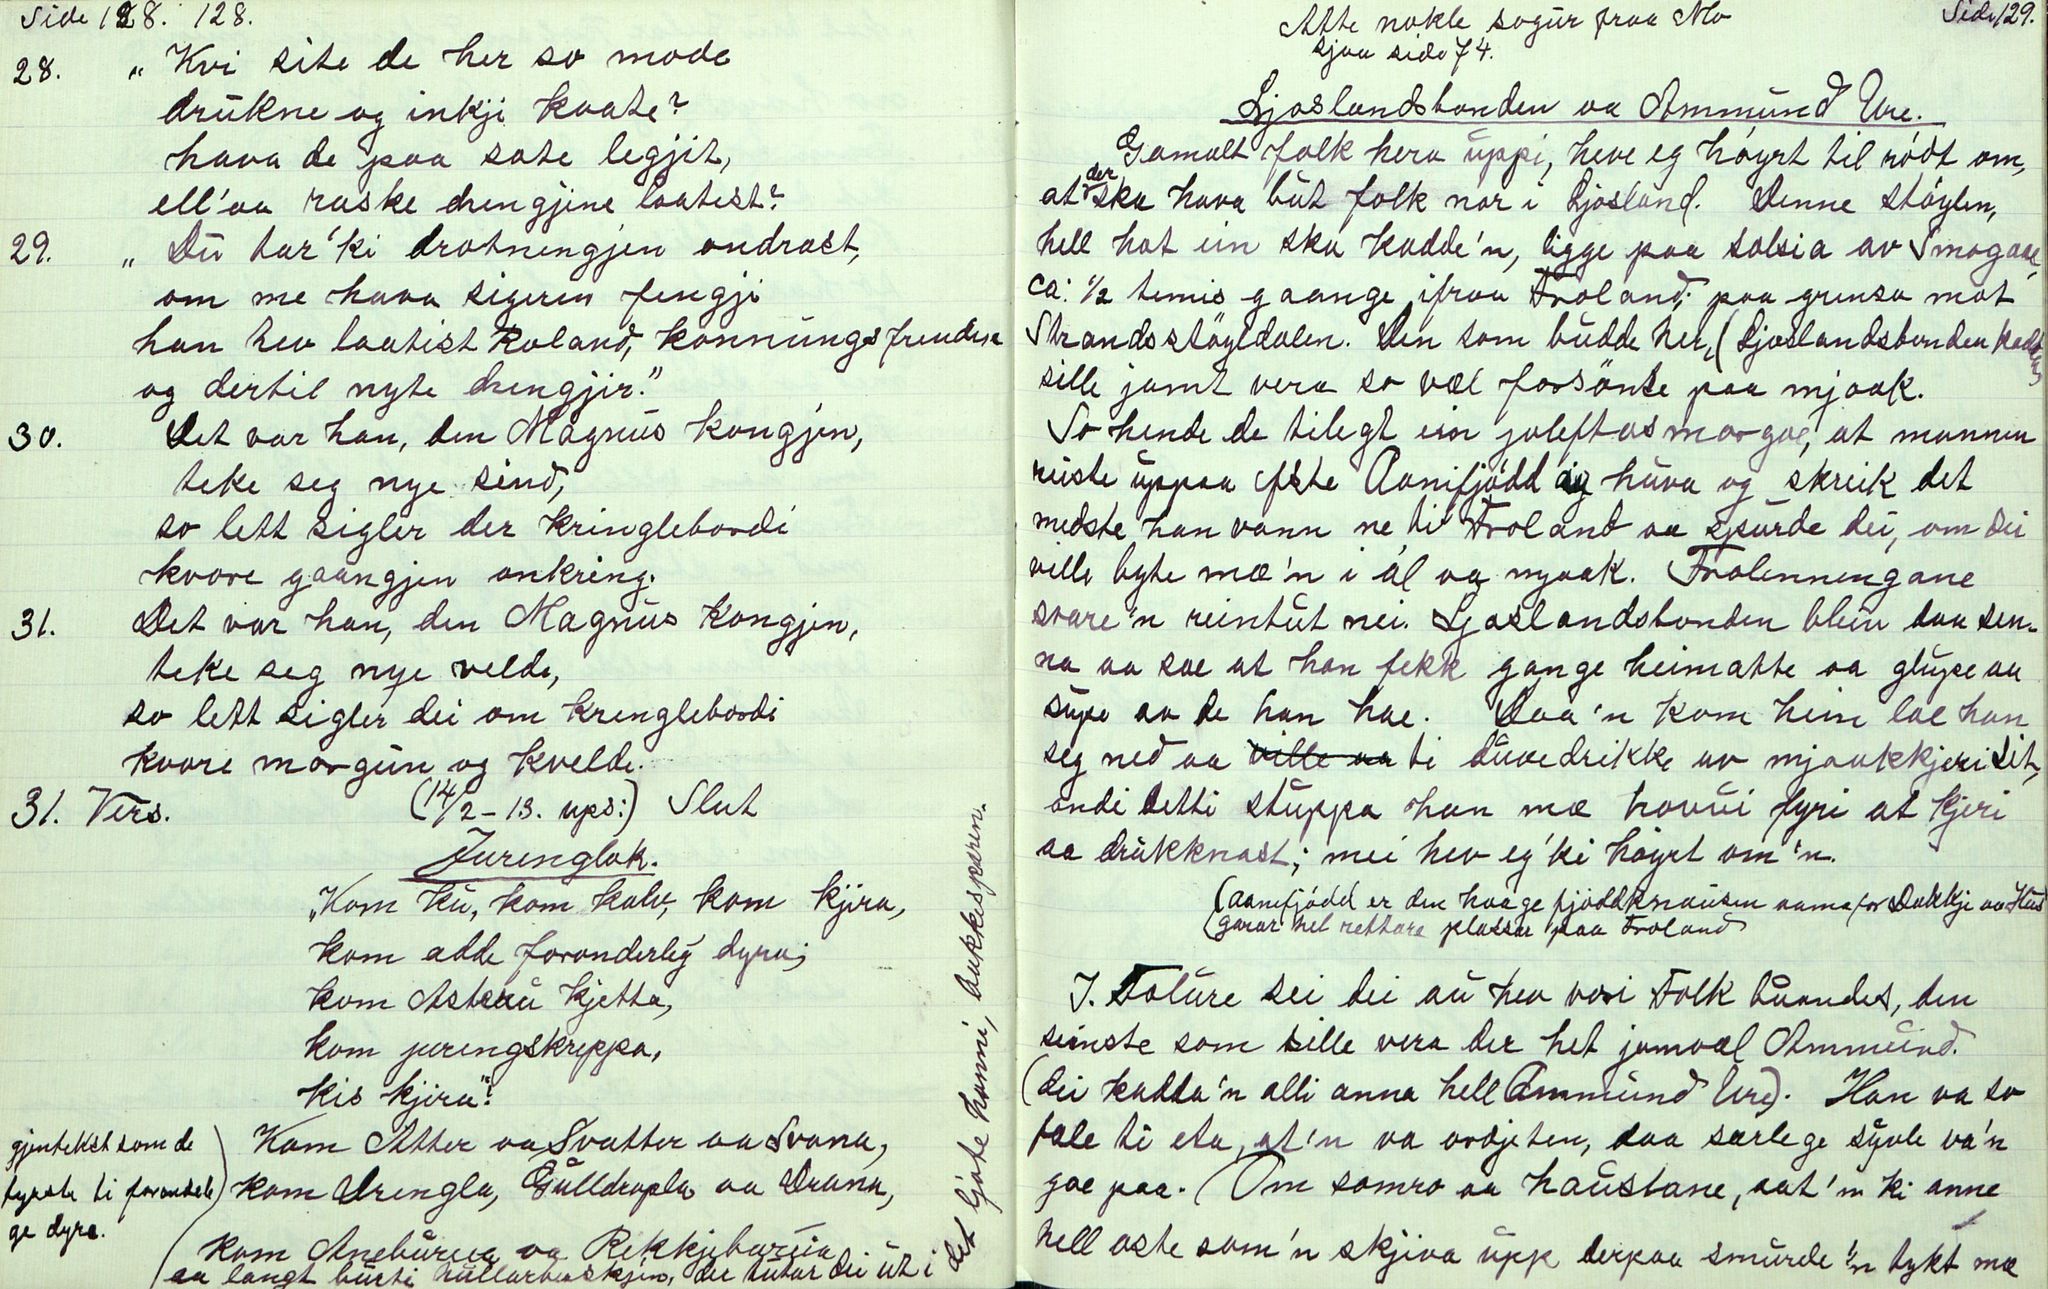 Side 128. 128.
28. „Kvi site de her so mode
drukne og inkji kaate?
hava de paa sote legjit,
ell'aa raske drengjine laatest?
29. „Du tar'ki drotningjen andrast,
om me hava sigeren fengji
han hev laatist Roland, konnungsfrenden
og dertil nyte drengjir."
30. Det var han, den Magnus kongjen,
teke seg nye sind,
so lett sigler der kringlebordi
kvore gaangjen onkring.
31. Det var han, den Magnus kongjen,
teke seg nye velde,
so lett sigler dei om kringlebordi
kvore morgun og kvelde.
31. Vers. (14/2-13. ups:) Slut
Jurenglok.
„Kom ku, kom kalv, kom kjira,
kom adde foronderleg dyra;
kom Asterau kjetta,
kom juringskreppa,
kis kjira"!
gjentekst som de
fyrste ti foronderle
ge dyra.
Kom Atter aa Svatter aa Svana,
kom Drengla, Gulldropla aa Drana,
kom Aneburua aa Rekkjebaruia
aa langt burti hullarbaskjen, der tutar dei ut i
det ljote honni, bukkesporen.
Side 129.
Atte nokle sogur fraa Mo
sjaa side 74.
Ljoslandsbonden aa Ammund Ure.
Gamalt folk hera uppi, heve eg høyrt til rødt om,
at der ska hava but folk nor i Ljosland. Denne støylen,
hell hot ein ska kadde'n, ligge paa solsia av Smogaae,
ca: 1/2 temis gaange ifraa Froland; paa grensa mot
Strandsstøyldalen. Den som budde her, (Ljoslandsbonden kadda'n)
sille jamt vera so væl forsønte paa mjaak.
So hende de tilegt ein joleftasmorgoe, at mannen
reiste uppaa efste Aanifjødd aig huva og skreik det
medste han vann ne ti Froland aa spurde dei, om dei
ville byte mæ'n i øl aa myaak. Frolenningane
svare'n reintut nei. Ljoslandsbonden blein daa sen-
na aa sae at han fekk gange heimatte aa glupe aa
supe av de han hae. Daa'n kom heim lae han
seg ned aa ville aa ti duvedrikke av mjaakkjeri sit,
ondi detti stuppa han mæ hovui fyri at kjeri
aa drukknast; mei hev eg'ki høyrt om'n.
(Aanifjødd er den haage fjøddknausen aama for Dokkji aa Hus
garar hel rettare plassar paa Froland
I. Foture sei dei au hev vori Folk buandes, den
seinste som sille vera der het jamvæl Ammund.
(dei kadda'n alli anna hell Ammund Ure). Han va so
fale ti eta, at'n va ovgjeten, daa særlege suvle va'n
gae paa. (Om somro aa haustane, aat'n ki anne
hell oste som'n skjiva upp derpaa smurde'n tykt mæ